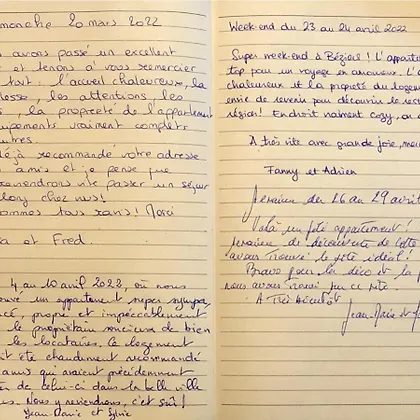 manche 20 mars 2022
avons passé un excellent
et tenons à vous remercier
tout : l'accueil chaleureux, la
, les attentions, les
, la propreté de l'appartement
vraiment complets
autres.
recommandé votre adresse
amis et je pense que
reviendrons vite passer un séjour
long chez vous!
sommes tous ravis! Merci
et Fred.
4 au 10 avril 2022, où nous
un appartement super sympa,
propre et impeccablement
le propriétaire soucieux de bien
les locataires. Le logement
été chaudement recommandé
amis qui avaient précédemment
de celui-ci dans la belle ville
Nous y reviendrons, c'est sûr!
Jean-Marie et Sylvie
Week-end du 23 au 24 avril 2022
Super week-end à Béziers! L'apparte
top pour un voyage en amoureux. L'
chaleureux et la propreté du logem
envie de revenir pour découvrir le res
région! Endroit vraiment cosy, on
A très vite avec grande joie,
Fanny et Adrien
Semaine du 26 au 29 avril
Voilà un joli appartement!
semaine de découverte de cette
avons trouvé le gîte idéal!
Bravo pour la déco et la
nous avons
A Très Bientôt
Jean-